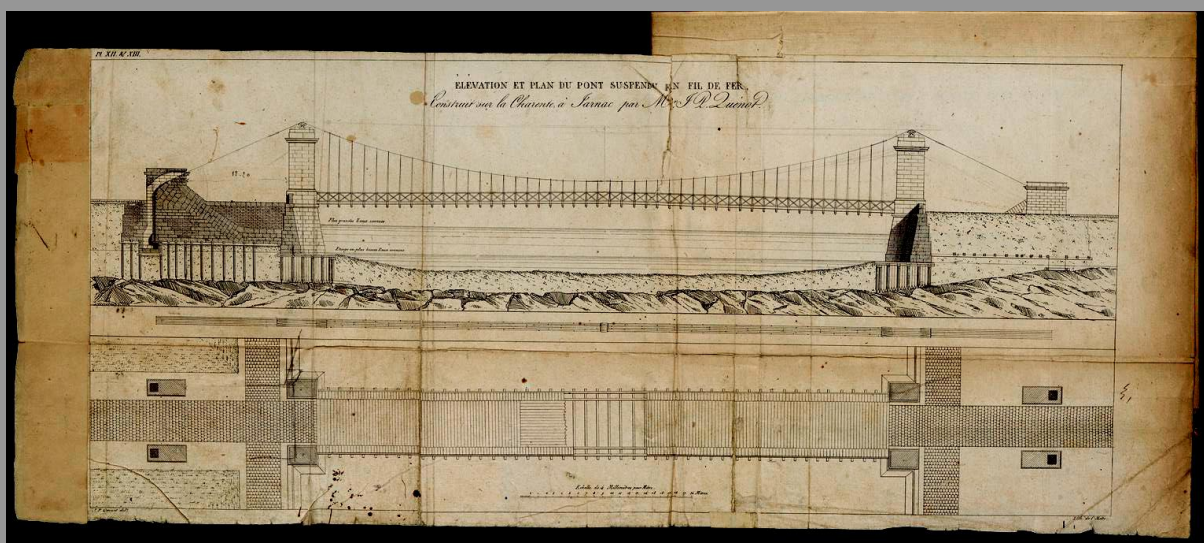 Pl. XII. & XIII.
ELEVATION ET PLAN DU PONT SUSPENDU EN FIL DE FER,
Construit sur la Charente, à Jarnac par Mr. J. P. Quenot.
Plus grandes Eaux connues
Etiage ou plus basses Eaux connues
Echelle de 4 Millimètres par Mètre.